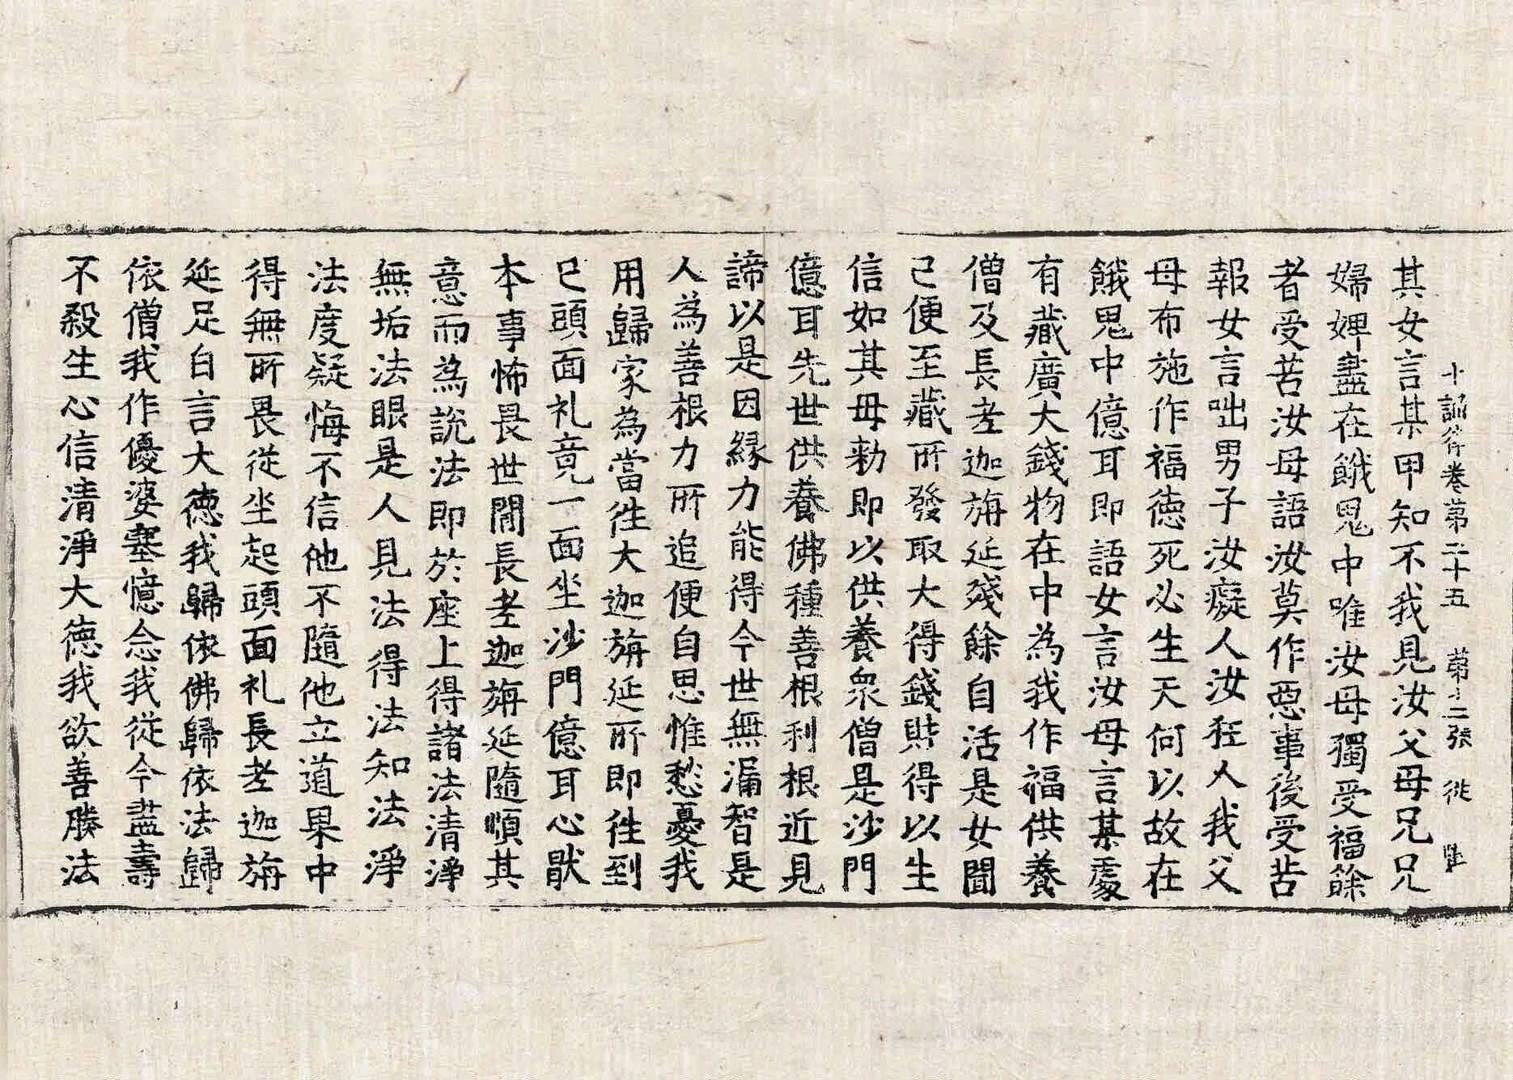 十誦律卷第二十五 第十二張 従
其女言某甲知不我見汝父母兄兄
婦婢盡在餓鬼中唯汝母獨受福餘
者受苦汝母語汝莫作惡事後受苦
報女言咄男子汝癡人汝狂人我父
母布施作福德死必生天何以故在
餓鬼中億耳即語女言汝母言某處
有藏廣大錢物在中為我作福供養
僧及長老迦旃延殘餘自活是女聞
已便至藏所發取大得錢財得以生
信如其母勑即以供養衆僧是沙門
億耳先世供養佛種善根利根近見
諦以是因縁力能得今世無漏智是
人為善根力所追便自思惟愁憂我
用歸家為當徃大迦旃延所即徃到
已頭面礼竟一面坐沙門億耳心猒
本事怖畏世間長老迦旃延隨順其
意而為說法即於座上得諸法清淨
無垢法眼是人見法得法知法淨
法度疑悔不信他不隨他立道果中
得無所畏從坐起頭面礼長老迦旃
延足白言大德我歸依佛歸依法歸
依僧我作優婆塞憶念我從今盡壽
不殺生心信清淨大德我欲善勝法